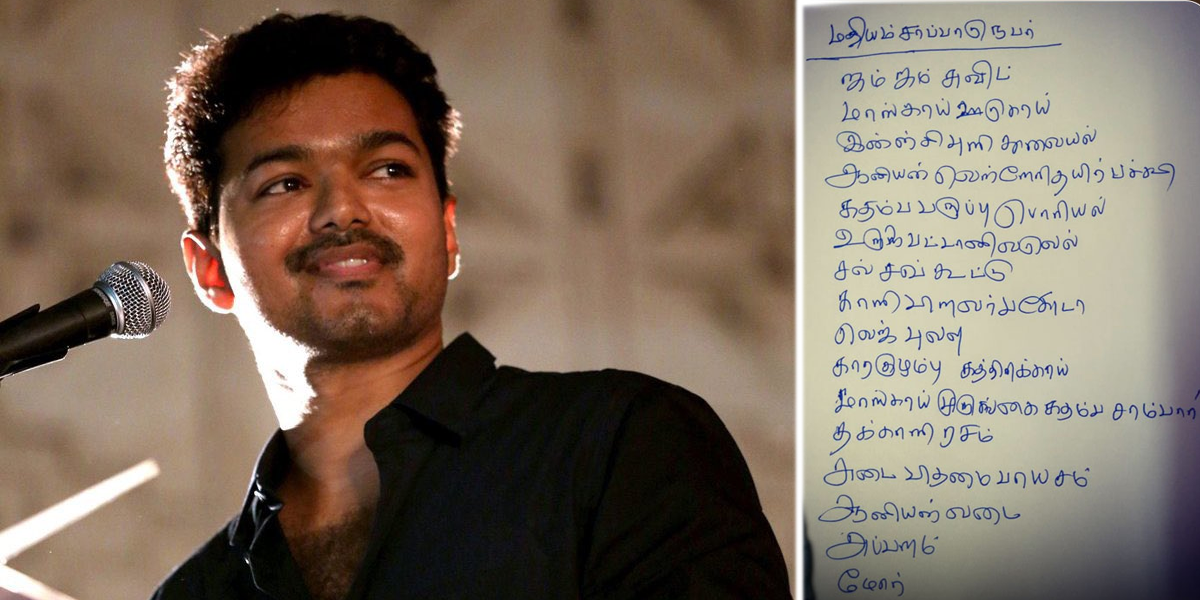 மதியம் சாப்பாடு நபர்
ஜம் ஜம் சுவிட்
மாங்காய் ஊறுகாய்
இஞ்சி புளி துவையல்
ஆனியன் வெள்ளேரி தயிர் பச்சடி
கதம்ப பருப்பு பொரியல்
உருளை பட்டாணி வறுவல்
சவ் சவ் கூட்டு
காளி பிளவர் பகோடா
வெஜ் புலவு
காரகுழம்பு கத்திரிக்காய்
மாங்காய் முருங்கை கதம்ப சாம்பார்
தக்காளி ரசம்
அடை பிரதமை பாயசம்
ஆனியன் வடை
அப்பளம்
மோர்